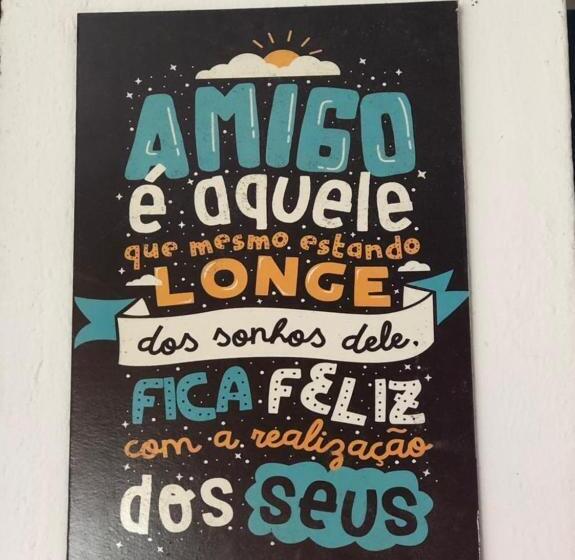 AMIGO
é aquele
que mesmo estando
LONGE
dos sonhos dele,
FICA FELIZ
com a realização
dos seus